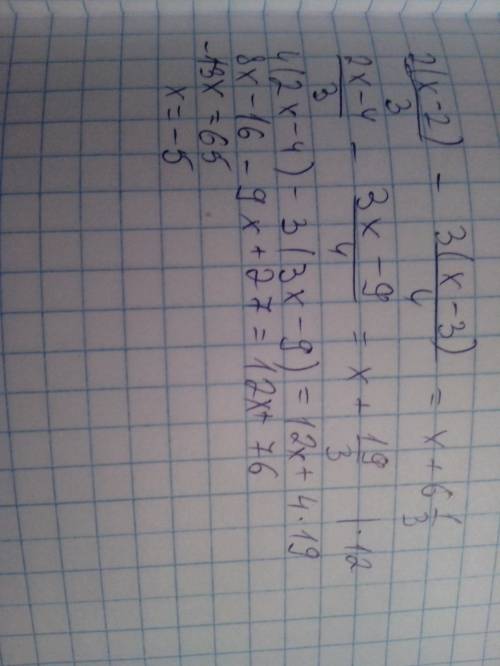 2(x-2)/3 - 3(x-3)/4 = x + 6 1/3
2x-4/3 - 3x-9/4 = x + 19/3 |·12
4(2x-4) - 3(3x-9) = 12x + 4·19
8x - 16 - 9x + 27 = 12x + 76
-13x = 65
x = -5